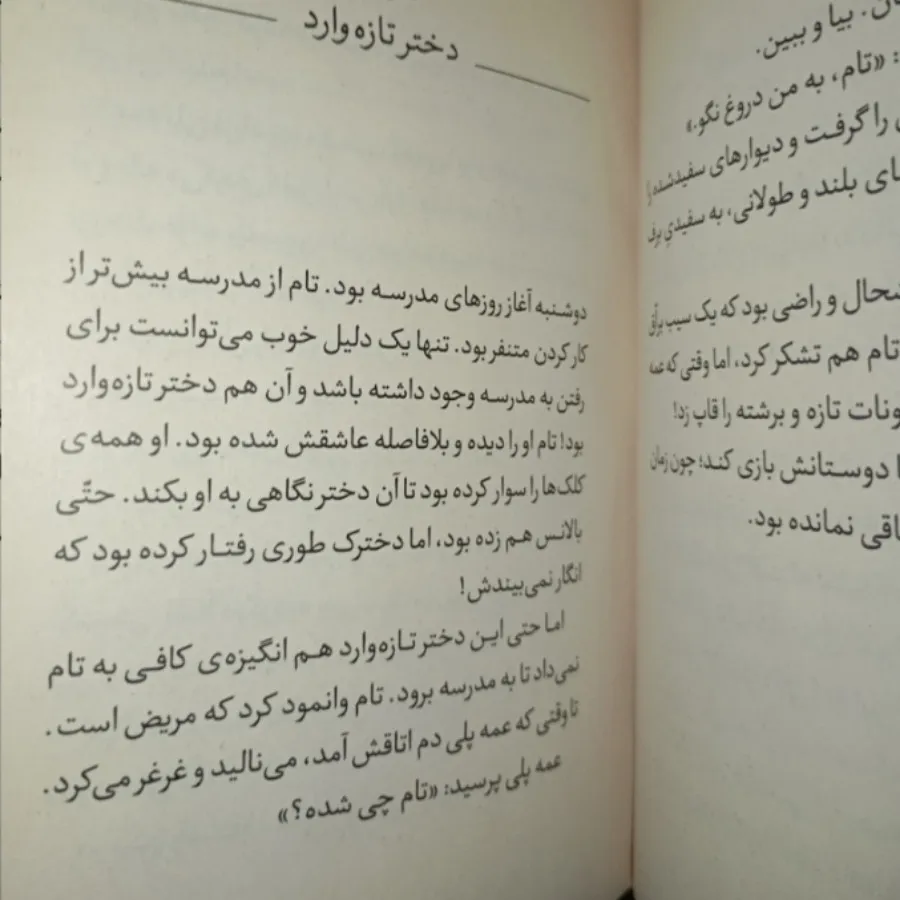 بیا و ببین.
«تام، به من دروغ نگو.»
را گرفت و دیوارهای سفیدشده
بلند و طولانی، به سفیدیِ برف
و راضی بود که یک سیب برّاق
تام هم تشکر کرد، اما وقتی که عمه
تازه و برشته را قاپ زد!
دوستانش بازی کند؛ چون زمان
نمانده بود.
دختر تازه‌وارد
دوشنبه آغاز روزهای مدرسه بود. تام از مدرسه بیش‌تر از
کار کردن متنفر بود. تنها یک دلیل خوب می‌توانست برای
رفتن به مدرسه وجود داشته باشد و آن هم دختر تازه‌وارد
بود! تام او را دیده و بلافاصله عاشقش شده بود. او همه‌ی
کلک‌ها را سوار کرده بود تا آن دختر نگاهی به او بکند. حتّی
بالانس هم زده بود، اما دخترک طوری رفتار کرده بود که
انگار نمی‌بیندش!
اما حتی این دختر تازه‌وارد هم انگیزه‌ی کافی به تام
نمی‌داد تا به مدرسه برود. تام وانمود کرد که مریض است.
تا وقتی که عمه پلی دم اتاقش آمد، می‌نالید و غرغر می‌کرد.
عمه پلی پرسید: «تام چی شده؟»